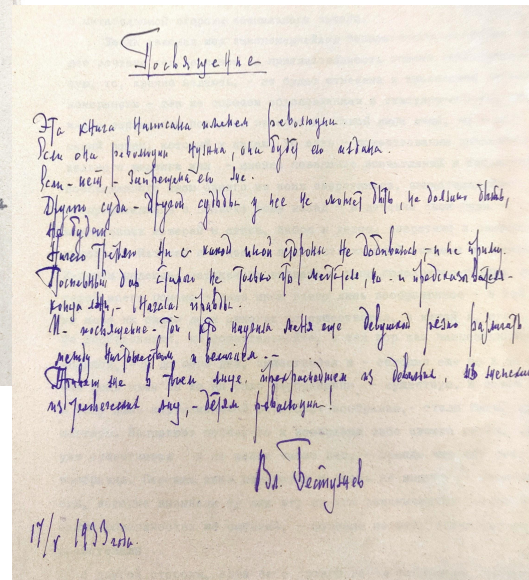 Посвящение
Эта книга написана пленем революции.
Если она революции нужна, она будет ею издана.
Если - нет, - запрещена ею же.
Другого суда - другой судьбы у нее не может быть, не должно быть,
не будет.
Ничего третьего ни с какой иной стороны не добиваюсь, - и не приму.
Посильный дар старого не только мстителя, но - и предсказателя -
конца лжи, - начала правды!
И - посвящение - той, кто научила меня еще девушкой резко различать
между ничтожеством и величием. -
Привет же в твоем лице, прекраснейшем из девичьих, из женских,
из человеческих лиц, - детям революции!
Вл. Бестужев
17/V 1933 года.